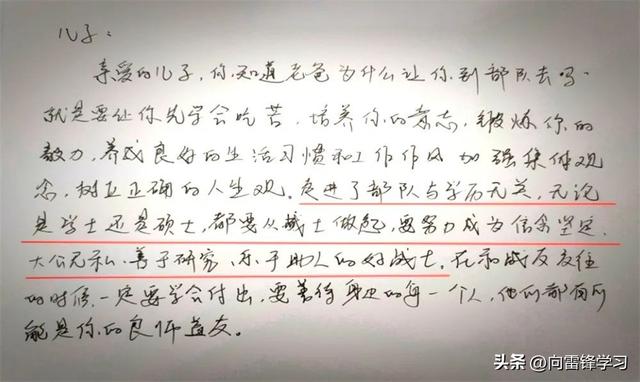 儿子:
亲爱的儿子,你知道老爸为什么让你到部队去吗.
就是要让你先学会吃苦,培养你的意志,锻炼你的
毅力,养成良好的生活习惯和工作作风加强集体观
念,树立正确的人生观。走进了部队与学历无关,无论
是学士还是硕士,都要从战士做起,要努力成为信念坚定、
大公无私、善于研究、乐于助人的好战士。在和战友交往
的时候,一定要学会付出,要善待身边的每一个人,他们都有可
能是你的良师益友。
头条 @向雷锋学习